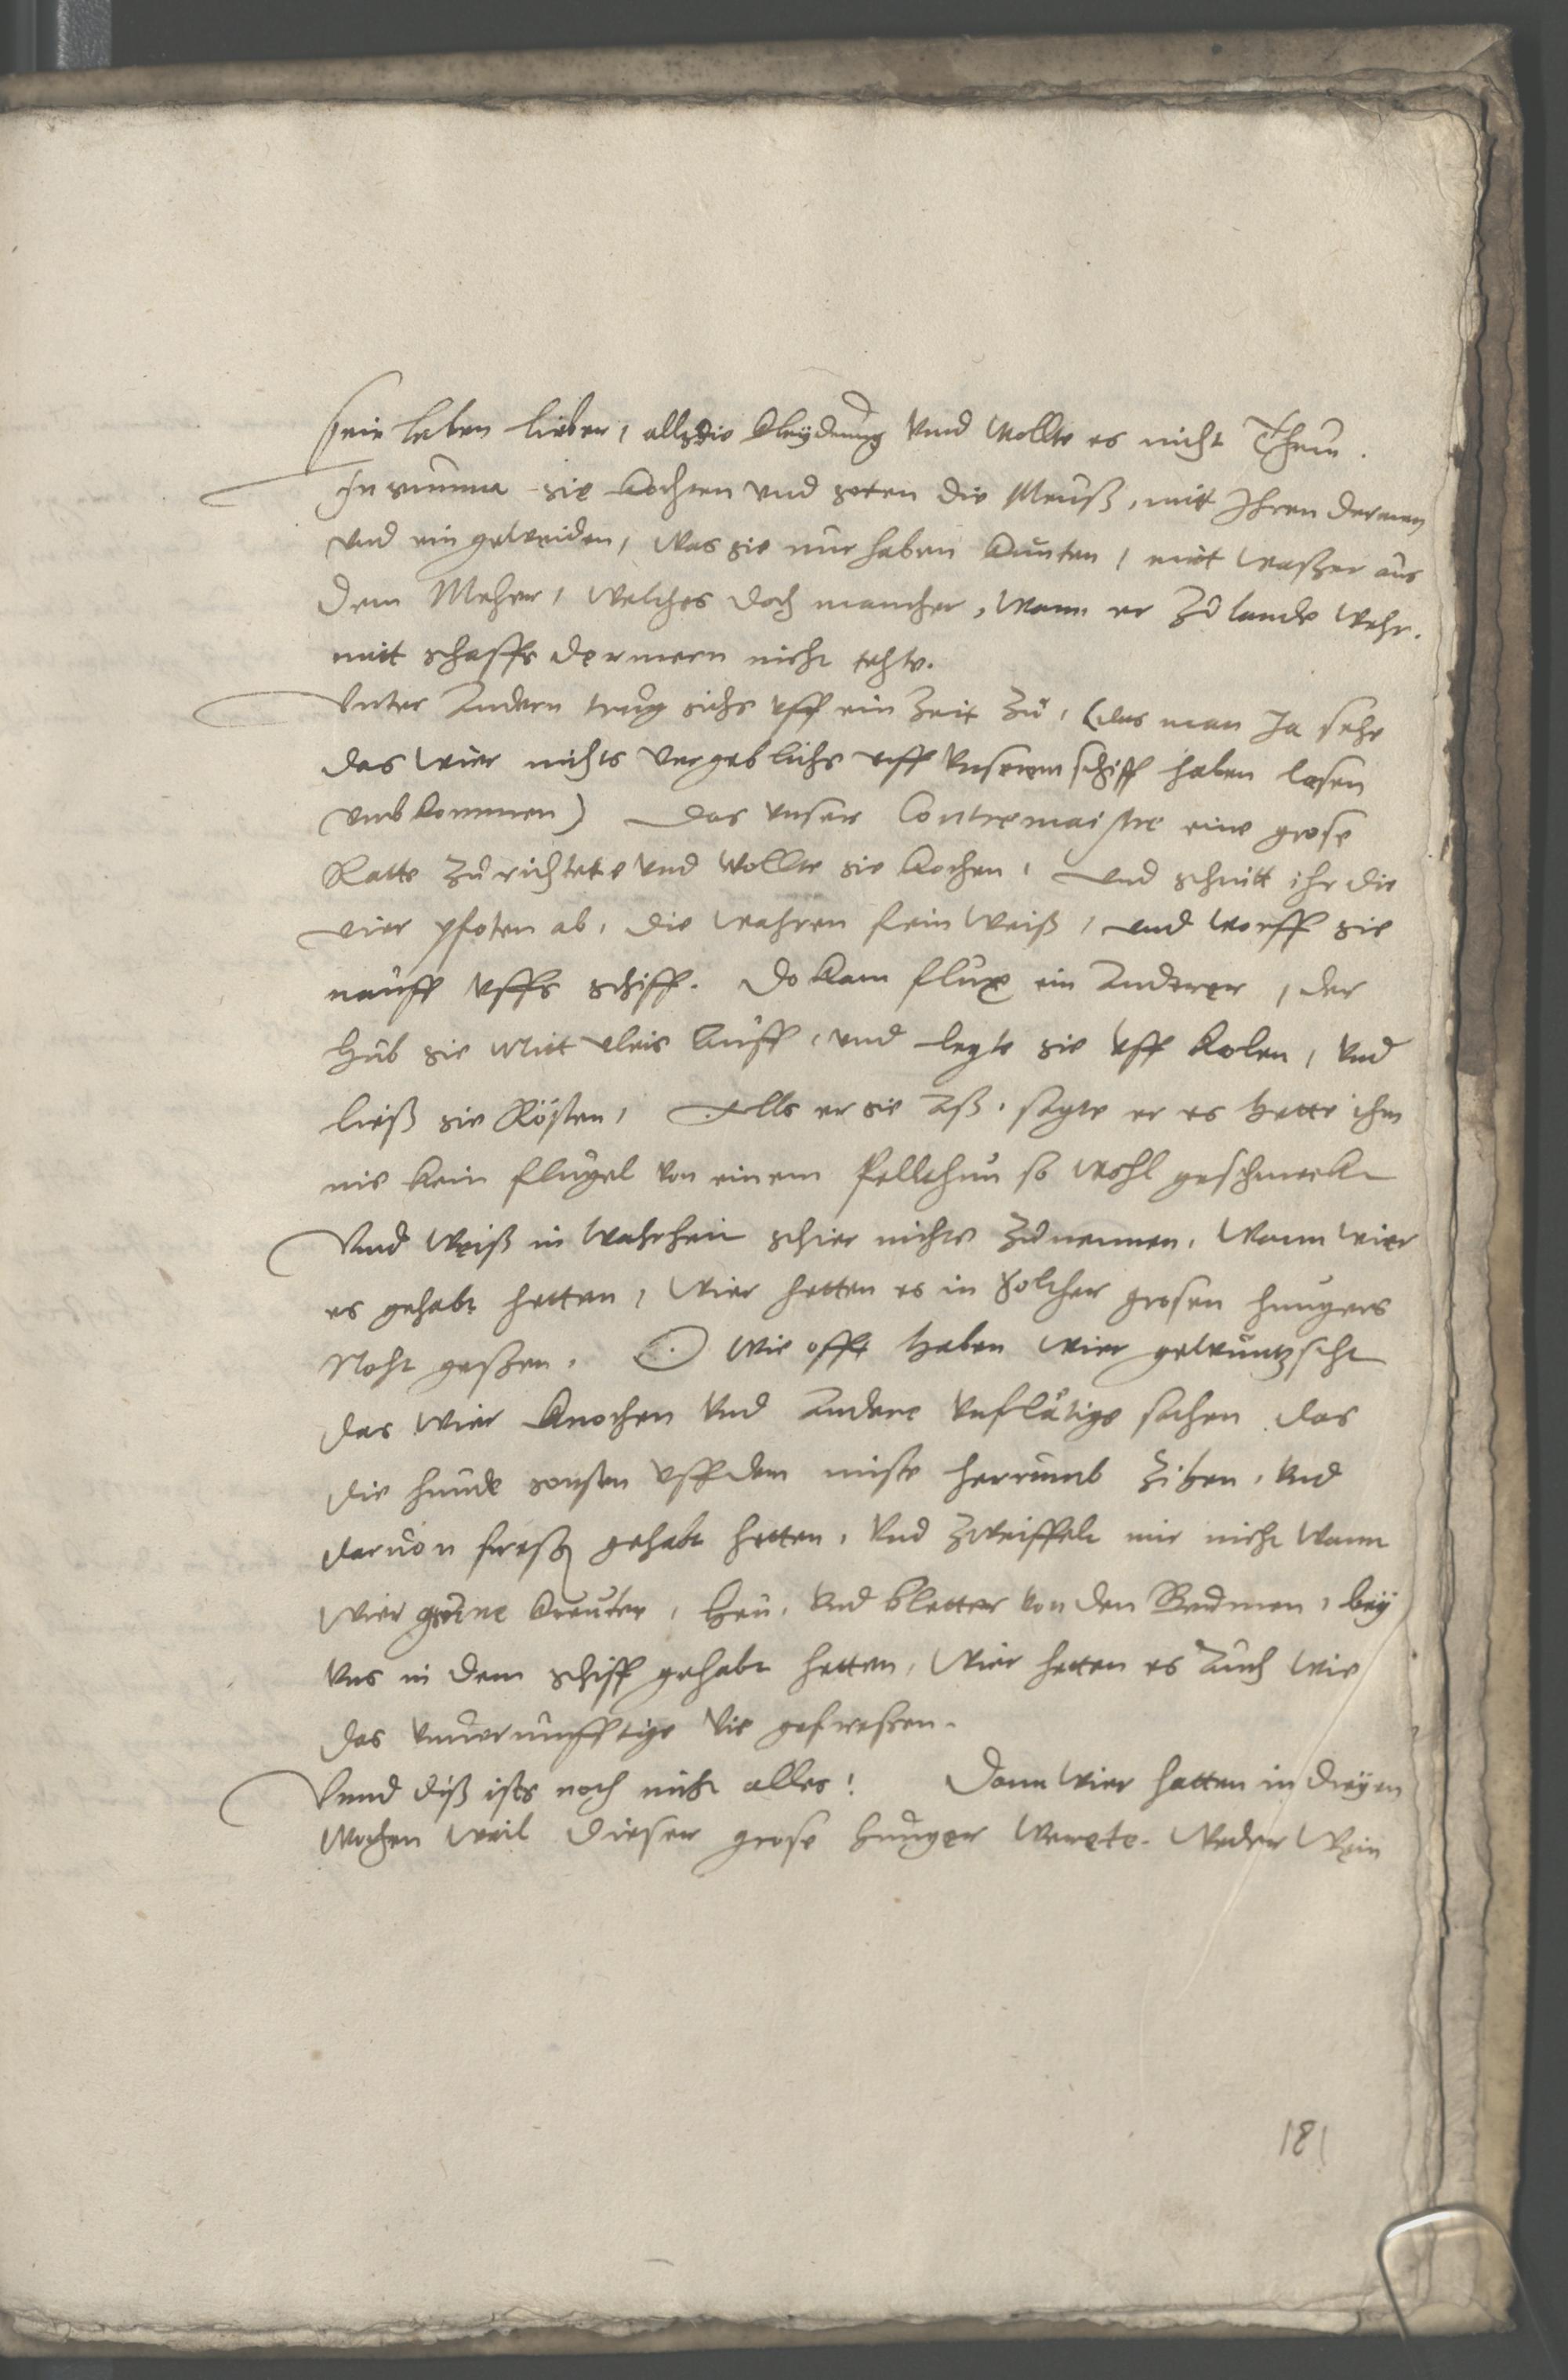 sein leben lieber, alls die kleydung vnd wollte es nicht Thun.
In summa sie kochten vnd soten die Meuß, mitt Ihren dermen
vnd eingeweiden, was sie nur haben kunten, mit waßer aus
dem Mehr, welches doch mancher, wann er zu lande wehr.
mitt schaffs dermern nicht tehte.
Vnter Andern trug sichs vff ein Zeit zu, (das man Ja sehe
das wier nichts vergeblichs vff vnserem schiff haben lasen
vmbkommen) das vnser Contremaistre eine grose
Ratte zurichtete vnd wollte sie kochen, vnd schnitt ihr die
vier pfoten ab, die wahren fein weiß, vnd worff sie
nauff vffs schiff. Do kam flux ein Anderer, der
hub sie mitt vleis auff, vnd legte sie vff kolen, vnd
ließ sie Rösten, Alls er sie Aß, sagte er es hette ihm
nie kein flugel von einem Felthun so wohl geschmeckt
Vnd weiß in wahrheit schier nichts zu nennen, wann wier
es gehabt hetten, wier hetten es in solcher grosen hungers
Noht geßen. O wie offt haben wier gewuntzscht
das wier knochen vnd andere vnflätige sachen das
die hunde sonsten vff dem miste herrumb zihen, vnd
daruon freßen gehabt hetten, vnd zweiffelt mir nicht wann
wier grüne kreuter, heu, vnd bletter von den Beumen, bey
vns in dem schiff gehabt hetten, wier hetten es auch wie
das vnuernunfftige vie gefreßen.
Vnnd diß ists noch nicht alles! Dann wier hatten in dreyen
wochen weil dieser grose hunger werete. weder wein
181